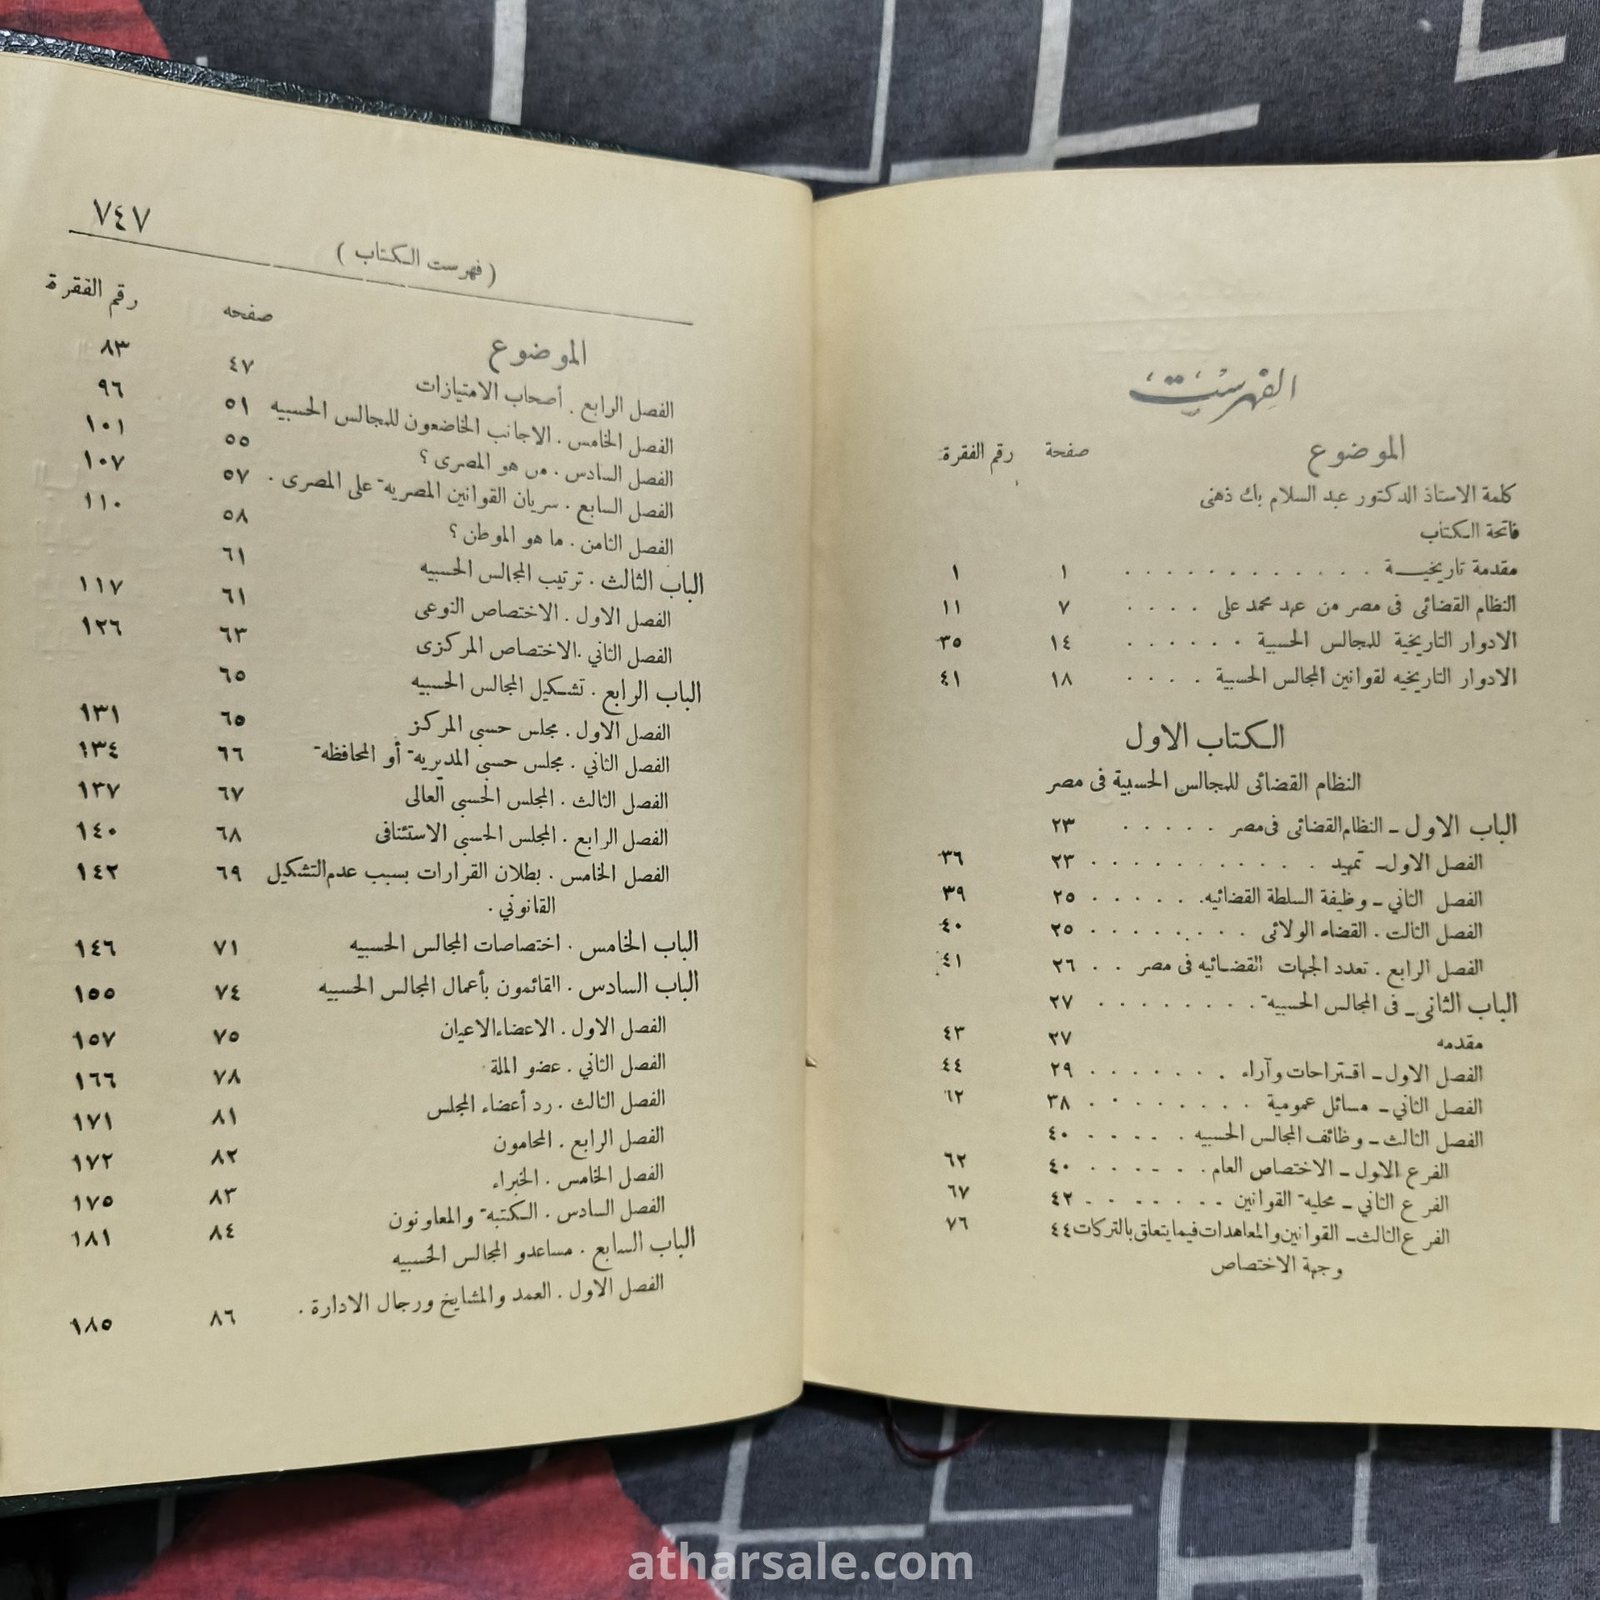 الفهرست
الموضوع صفحة رقم الفقرة
كلمة الاستاذ الدكتور عبد السلام بك ذهنى
فاتحة الكتاب
مقدمة تاريخية . . . . . . . . . . . . ١ ١
النظام القضائى فى مصر من عهد محمد على . . . . ٧ ١١
الادوار التاريخية للمجالس الحسبية . . . . . . ١٤ ٣٥
الادوار التاريخيه لقوانين المجالس الحسبية . . . . ١٨ ٤١
الكتاب الاول
النظام القضائى للمجالس الحسبية فى مصر
الباب الاول ـ النظام القضائى فى مصر . . . . . ٢٣
الفصل الاول ـ تمهيد . . . . . . . . . . ٢٣ ٣٦
الفصل الثاني ـ وظيفة السلطة القضائيه . . . . . . ٢٥ ٣٩
الفصل الثالث . القضاء الولائى . . . . . . . . ٢٥ ٤٠
الفصل الرابع . تعدد الجهات القضائيه فى مصر . . ٢٦ ٤١
الباب الثانى ـ فى المجالس الحسبية . . . . . . . . ٢٧
مقدمه ٢٧ ٤٣
الفصل الاول ـ اقتراحات وآراء . . . . . . . ٢٩ ٤٤
الفصل الثاني ـ مسائل عمومية . . . . . . . . ٣٨ ٦٢
الفصل الثالث ـ وظائف المجالس الحسبيه . . . . . ٤٠
الفرع الاول ـ الاختصاص العام . . . . . . ٤٠ ٦٢
الفرع الثاني ـ محلية القوانين . . . . . . . ٤٢ ٦٧
الفرع الثالث ـ القوانين والمعاهدات فيما يتعلق بالتركات ٤٤ ٧٦
وجهة الاختصاص
٧٤٧
( فهرست الكتاب )
الموضوع صفحه رقم الفقرة
الفصل الرابع . أصحاب الامتيازات ٤٧ ٨٣
الفصل الخامس . الاجانب الخاضعون للمجالس الحسبيه ٥١ ٩٦
الفصل السادس . من هو المصرى ؟ ٥٥ ١٠١
الفصل السابع . سريان القوانين المصرية على المصرى . ٥٧ ١٠٧
الفصل الثامن . ما هو الموطن ؟ ٥٨ ١١٠
الباب الثالث . ترتيب المجالس الحسبيه ٦١
الفصل الاول . الاختصاص النوعى ٦١ ١١٧
الفصل الثاني . الاختصاص المركزى ٦٣ ١٢٦
الباب الرابع . تشكيل المجالس الحسبيه ٦٥
الفصل الاول . مجلس حسبي المركز ٦٥ ١٣١
الفصل الثاني . مجلس حسبي المديرية أو المحافظة ٦٦ ١٣٤
الفصل الثالث . المجلس الحسبي العالى ٦٧ ١٣٧
الفصل الرابع . المجلس الحسبي الاستئنافى ٦٨ ١٤٠
الفصل الخامس . بطلان القرارات بسبب عدم التشكيل ٦٩ ١٤٢
القانوني .
الباب الخامس . اختصاصات المجالس الحسبيه ٧١ ١٤٦
الباب السادس . القائمون بأعمال المجالس الحسبيه ٧٤ ١٥٥
الفصل الاول . الاعضاء الاعيان ٧٥ ١٥٧
الفصل الثاني . عضو الملة ٧٨ ١٦٦
الفصل الثالث . رد أعضاء المجلس ٨١ ١٧١
الفصل الرابع . المحامون ٨٢ ١٧٢
الفصل الخامس . الخبراء ٨٣ ١٧٥
الفصل السادس . الكتبة والمعاونون ٨٤ ١٨١
الباب السابع . مساعدو المجالس الحسبيه
الفصل الاول . العمد والمشايخ ورجال الادارة . ٨٦ ١٨٥
atharsale.com